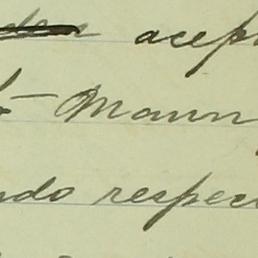 acep
Mann
ndo respec